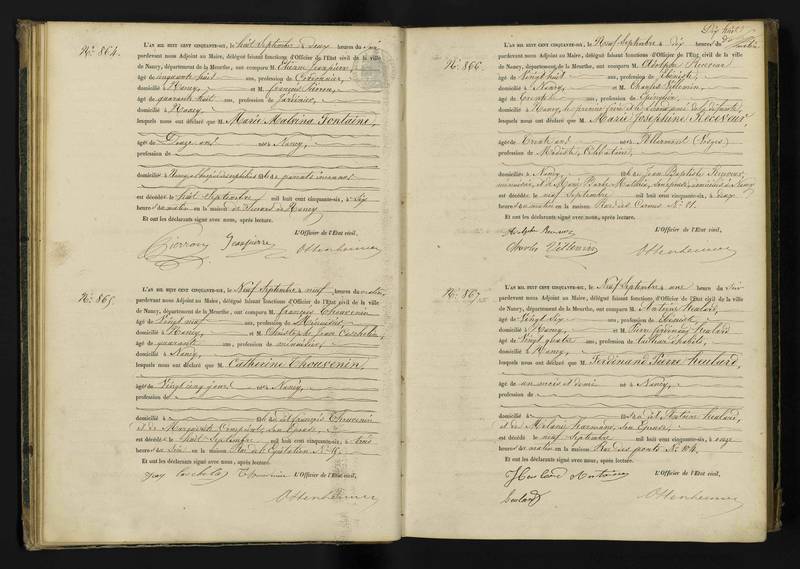 No. 864.
L'AN MIL HUIT CENT CINQUANTE-SIX, le huit Septembre à deux heures du soir
pardevant nous Adjoint au Maire, délégué faisant fonctions d'Officier de l'État civil de la ville
de Nancy, département de la Meurthe, ont comparu M.
âgé de cinquante huit ans, profession de Cordonnier,
domicilié à Nancy, et M. françois Pierron,
âgé de quarante huit ans, profession de Jardinier,
domicilié à Nancy,
lesquels nous ont déclaré que M. Marie Malvina Fontaine,
âgée de Douze ans née à Nancy,
profession de
domicilié à Nancy, parents inconnus
est décédée le huit Septembre mil huit cent cinquante-six, à dix
heures du matin en la maison de Secours de Nancy
Et ont les déclarants signé avec nous, après lecture.
L'Officier de l'État civil,
Pierron Jeanpierre Ottenheimer
No. 865.
L'AN MIL HUIT CENT CINQUANTE-SIX, le Neuf Septembre à neuf heures du matin,
pardevant nous Adjoint au Maire, délégué faisant fonctions d'Officier de l'État civil de la ville
de Nancy, département de la Meurthe, ont comparu M. françois Thouvenin
âgé de Vingt neuf ans, profession de Menuisier,
domicilié à Nancy, et M.
âgé de quarante ans, profession de menuisier,
domicilié à Nancy,
lesquels nous ont déclaré que M. Catherine Thouvenin,
âgée de Vingt cinq jours née à Nancy,
profession de
domicilié à fille de françois Thouvenin
et de Marguerite son Epouse,
est décédée le huit Septembre mil huit cent cinquante-six, à trois
heures du Soir en la maison Rue de l'Equitation No. 15.
Et ont les déclarants signé avec nous, après lecture.
Thouvenin L'Officier de l'État civil,
Ottenheimer
Dix huit
No. 866.
L'AN MIL HUIT CENT CINQUANTE-SIX, le Neuf Septembre à dix heures du matin
pardevant nous Adjoint au Maire, délégué faisant fonctions d'Officier de l'État civil de la ville
de Nancy, département de la Meurthe, ont comparu M. Adolphe Receveur
âgé de Vingt huit ans, profession de Ebéniste,
domicilié à Nancy, et M. Charles Villemin,
âgé de ans, profession de
domicilié à Nancy, le premier frère de la défunte,
lesquels nous ont déclaré que M. Marie Josephine Receveur,
âgée de Trente ans née à (Vosges)
profession de Modiste, Célibataire,
domicilié à Nancy, fille de Jean Baptiste Receveur,
menuisier, et de Marie domiciliés à Nancy
est décédée le neuf Septembre mil huit cent cinquante-six, à deux
heures du matin en la maison Rue des Carmes No. 21.
Et ont les déclarants signé avec nous, après lecture.
Adolphe Receveur L'Officier de l'État civil,
Charles Villemin Ottenheimer
No. 867.
L'AN MIL HUIT CENT CINQUANTE-SIX, le Neuf Septembre à une heure du soir
pardevant nous Adjoint au Maire, délégué faisant fonctions d'Officier de l'État civil de la ville
de Nancy, département de la Meurthe, ont comparu M. Antoine Heulard,
âgé de Vingt six ans, profession de Ebéniste,
domicilié à Nancy, et M. Pierre Ferdinand Heulard
âgé de Vingt quatre ans, profession de tailleur d'habits,
domicilié à Nancy,
lesquels nous ont déclaré que M. Ferdinand Pierre Heulard,
âgé de un mois et demi né à Nancy,
profession de
domicilié à fils de Antoine Heulard,
et de Melanie Harmand, son Epouse
est décédé le neuf Septembre mil huit cent cinquante-six, à onze
heures du matin en la maison Rue des ponts No. 104.
Et ont les déclarants signé avec nous, après lecture.
Heulard Antoine L'Officier de l'État civil,
heulard Ottenheimer